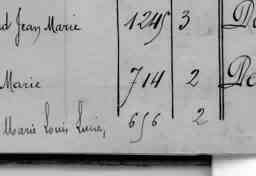 d Jean Marie 1245 3 De
Marie 714 2 De
Marie Louis Lucie, 656 2